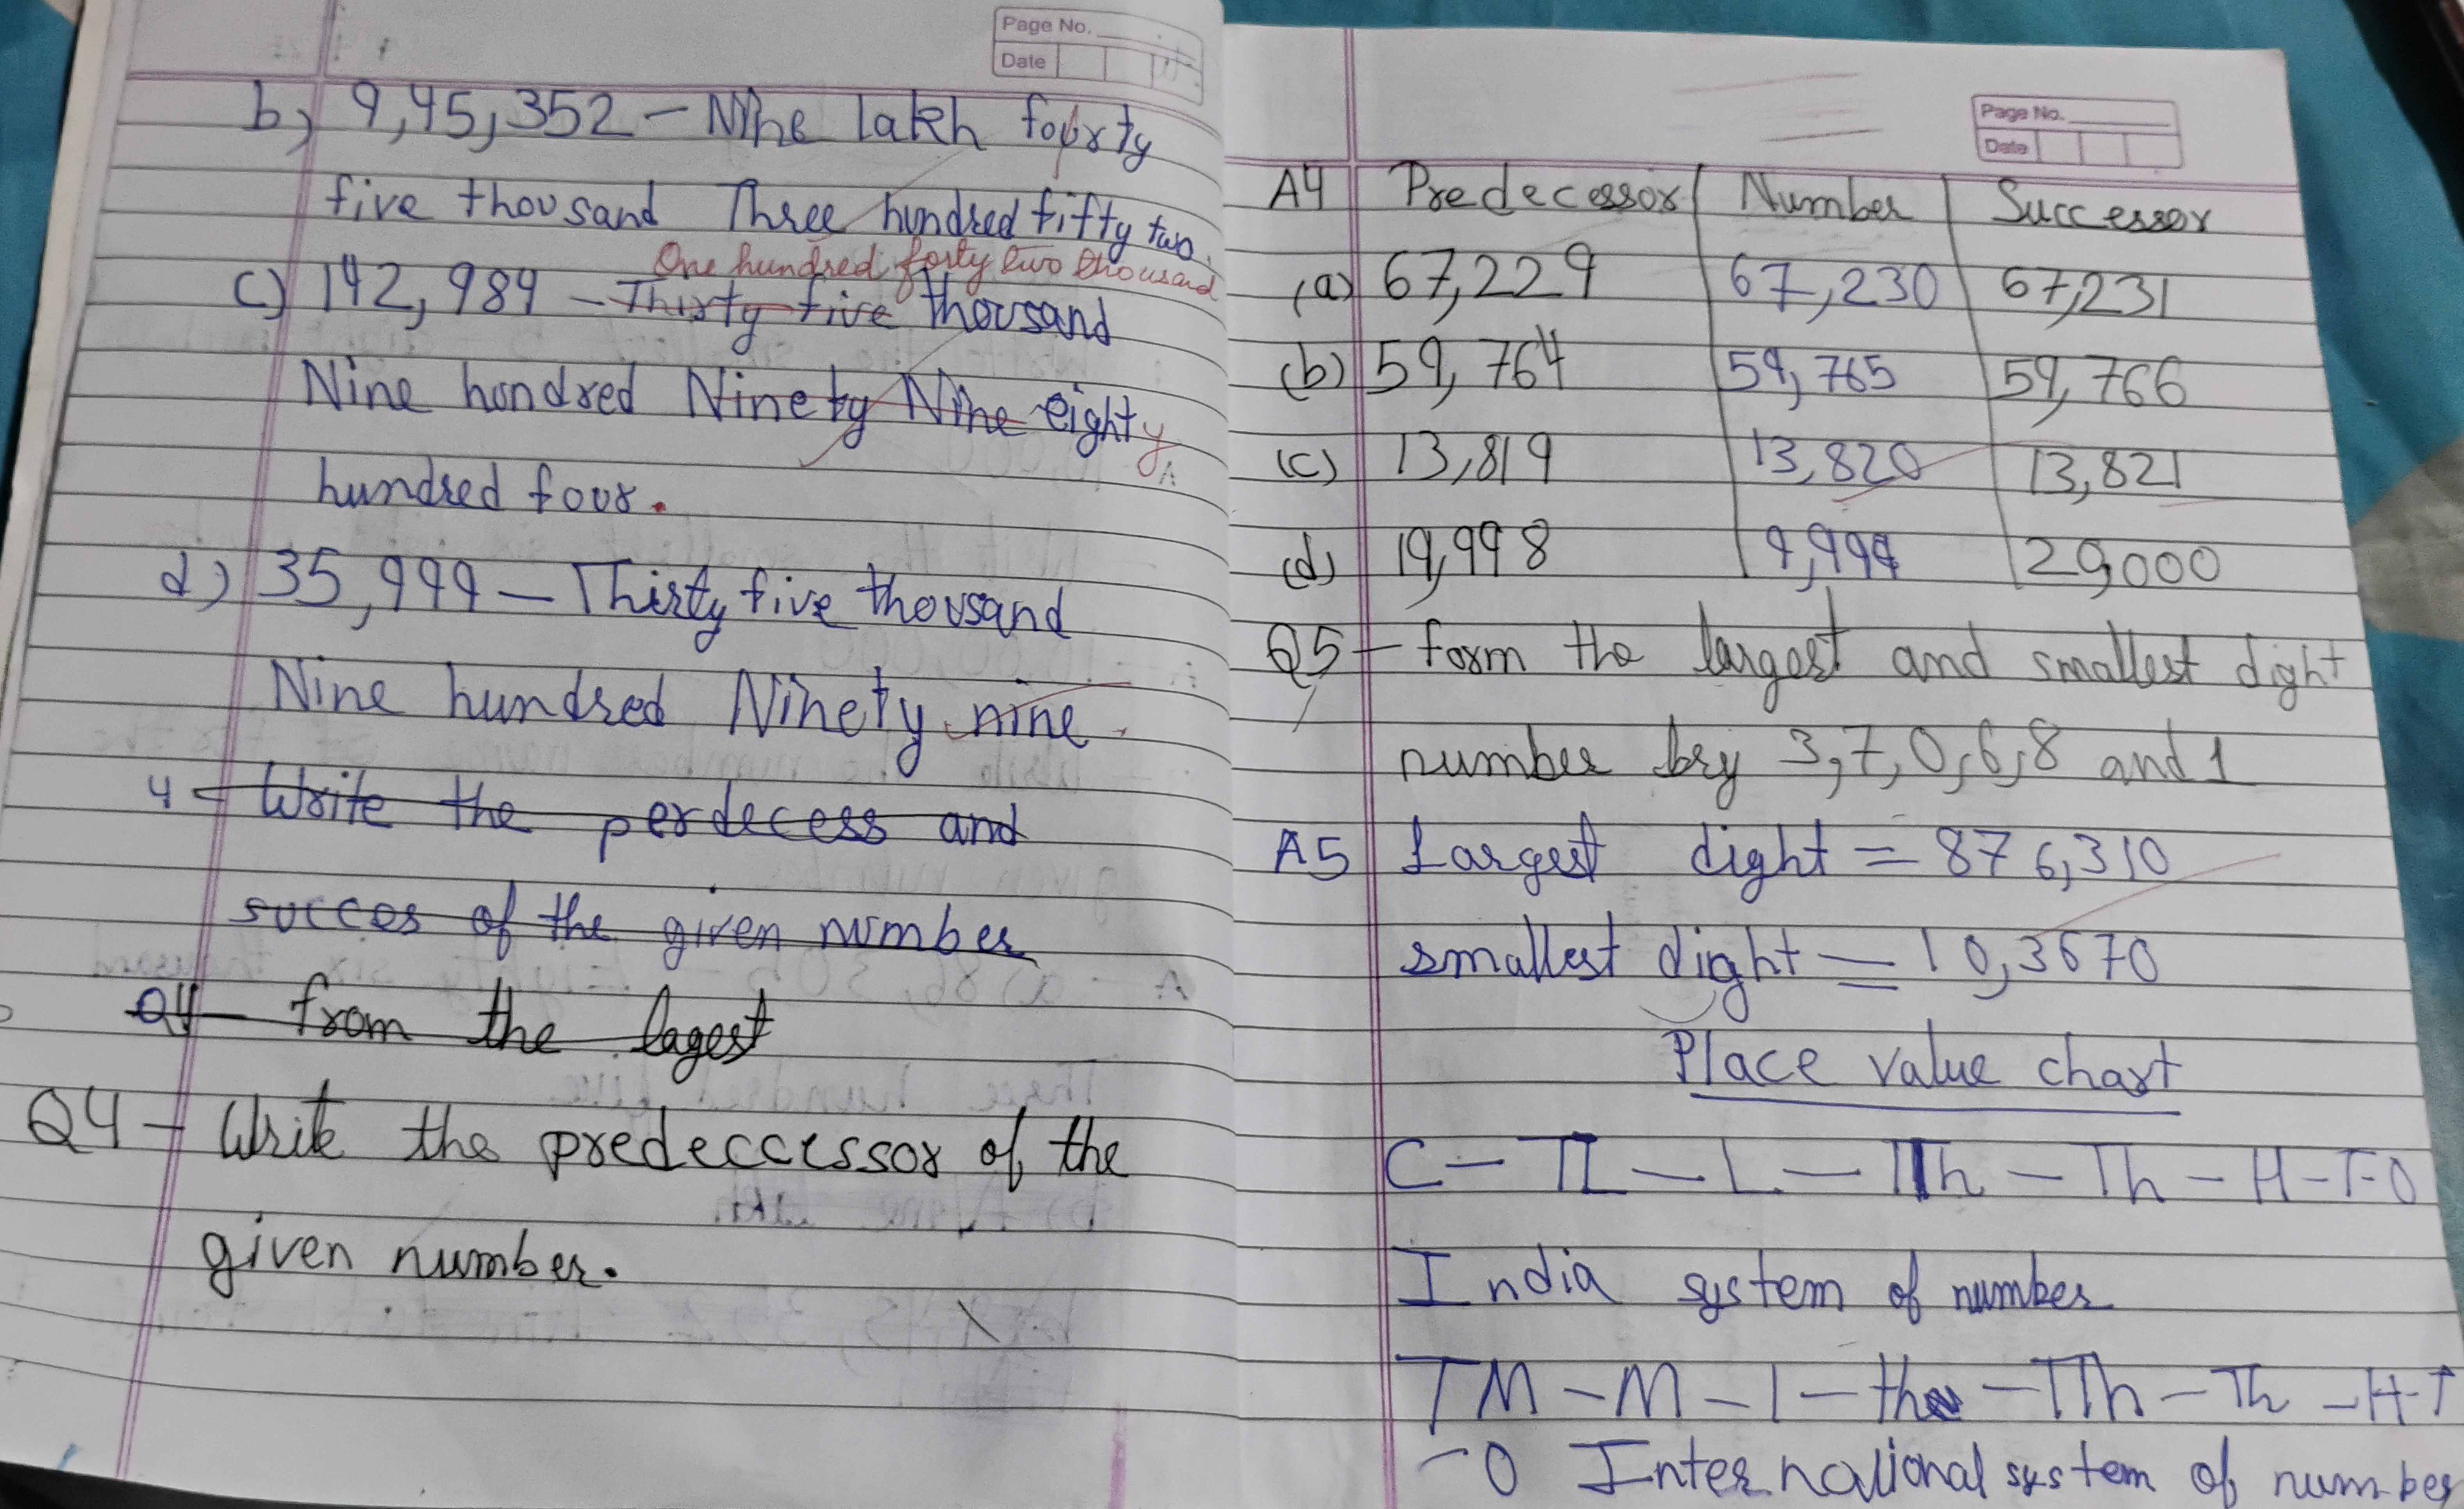 Page No.
Date
b) 9,45,352 – Nine lakh fourty
five thousand Three hundred fifty two.
One hundred forty two thousand
c) 142,984 – Thirty five thousand
Nine hundred Ninety Nine eighty
hundred four.
d) 35,999 – Thirty five thousand
Nine hundred Ninety nine
4 – Write the perdecess and
succes of the given number
Q4 – from the lagest
Q4 – Write the predeccessor of the
given number.
Page No.
Date
A4 Predecessor Number Successor
(a) 67,229 67,230 67,231
(b) 59,764 59,765 59,766
(c) 13,819 13,820 13,821
(d) 19,998 19,999 20,000
Q5 – form the largest and smallest dight
number bry 3,7,0,6,8 and 1
A5 Largest dight = 876,310
smallest dight = 10,3670
Place value chart
C – TL – L – TTh – Th – H – T – O
India system of number
TM – M – l – th – TTh – Th – H – T
– O International system of number